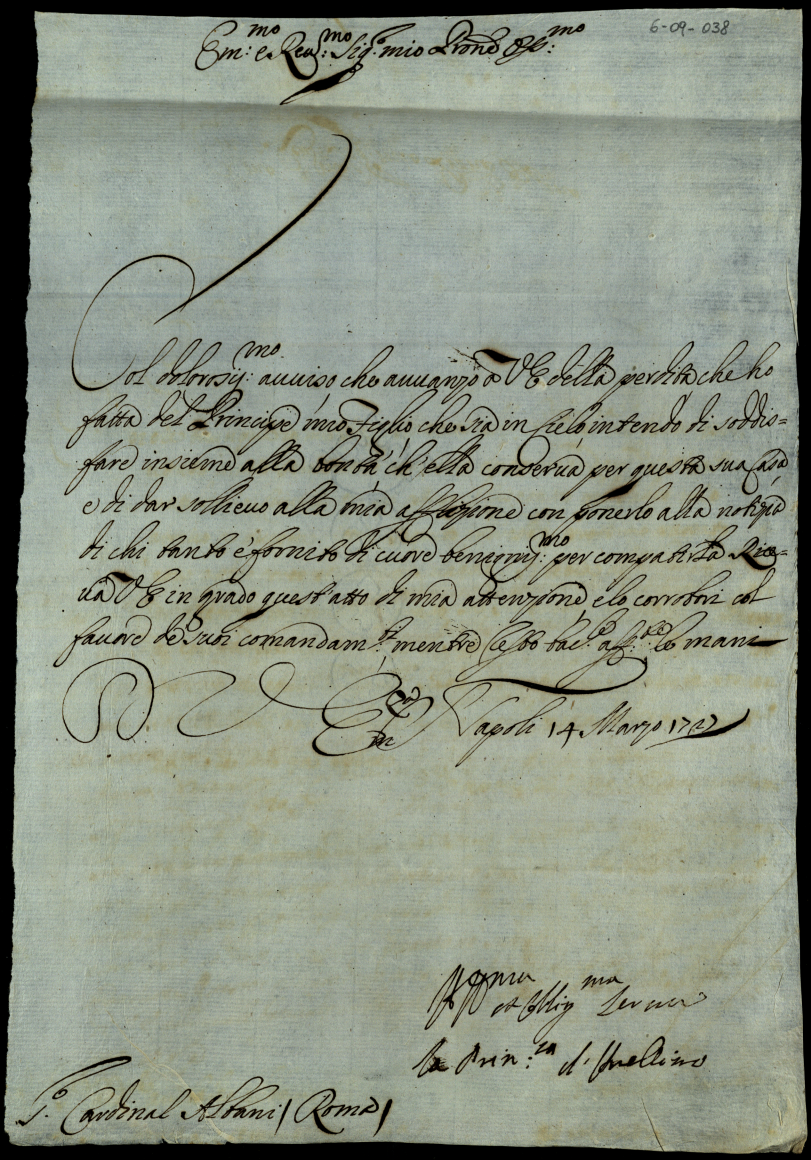 6-09-038
Em:mo e Reu:mo Sig.r mio Pron.e Oss:mo
Col dolorosiss:mo auuiso che auuanzo a VE della perdita che ho
fatta del Principe mio Figlio che sia in Cielo intendo di soddis=
fare insieme alla bontà ch'ella conserua per questa sua Casa,
e di dar sollieuo alla mia afflizione con ponerlo alla notizia
di chi tanto è fornito di cuore benigniss:mo per compatirla Rice=
ua VE in grado quest'atto di mia attenzione, e lo corrobori col
fauore de suoi comandam.ti mentre le bacio aff.te le mani
Napoli 14 Marzo 1727
et Oblig.ma Serua
la Prin:za d'Auellino
S.r Cardinal Albani (Roma)